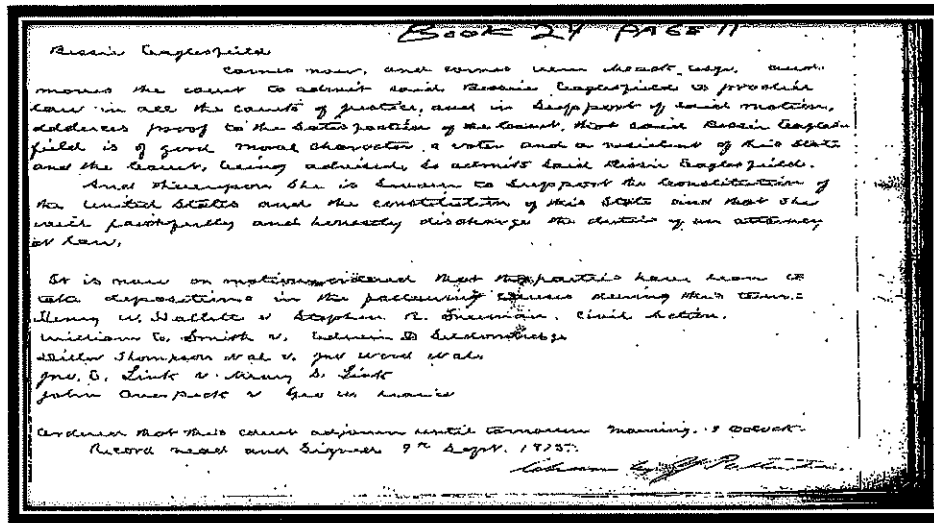 BOOK 24 PAGE 11
Bessie Eaglesfield
Comes now, and comes and
moves the court to admit said Bessie Eaglesfield to practice
law in all the courts of justice, and in support of said motion,
adduces proof to the satisfaction of the Court, that said Bessie Eagles-
field is of good moral character, a voter and a resident of this State
and the Court, being advised, so admits said Bessie Eaglesfield.
And thereupon she is sworn to support the Constitution of
the United States and the constitution of this State and that she
will faithfully and honestly discharge the duties of an attorney
at law.
It is now on motion ordered that the parties have leave to
take depositions in the following causes during this term:
Henry W. v Stephen R. Freeman. Civil Action.
William E. Smith v.
Thompson et al v. Jno Ward et al
Jno. D. Link v D. Link
John Overpeck v Geo W.
Ordered that this court adjourn until tomorrow morning. 8 oclock.
Record read and signed 9th Sept. 1875.